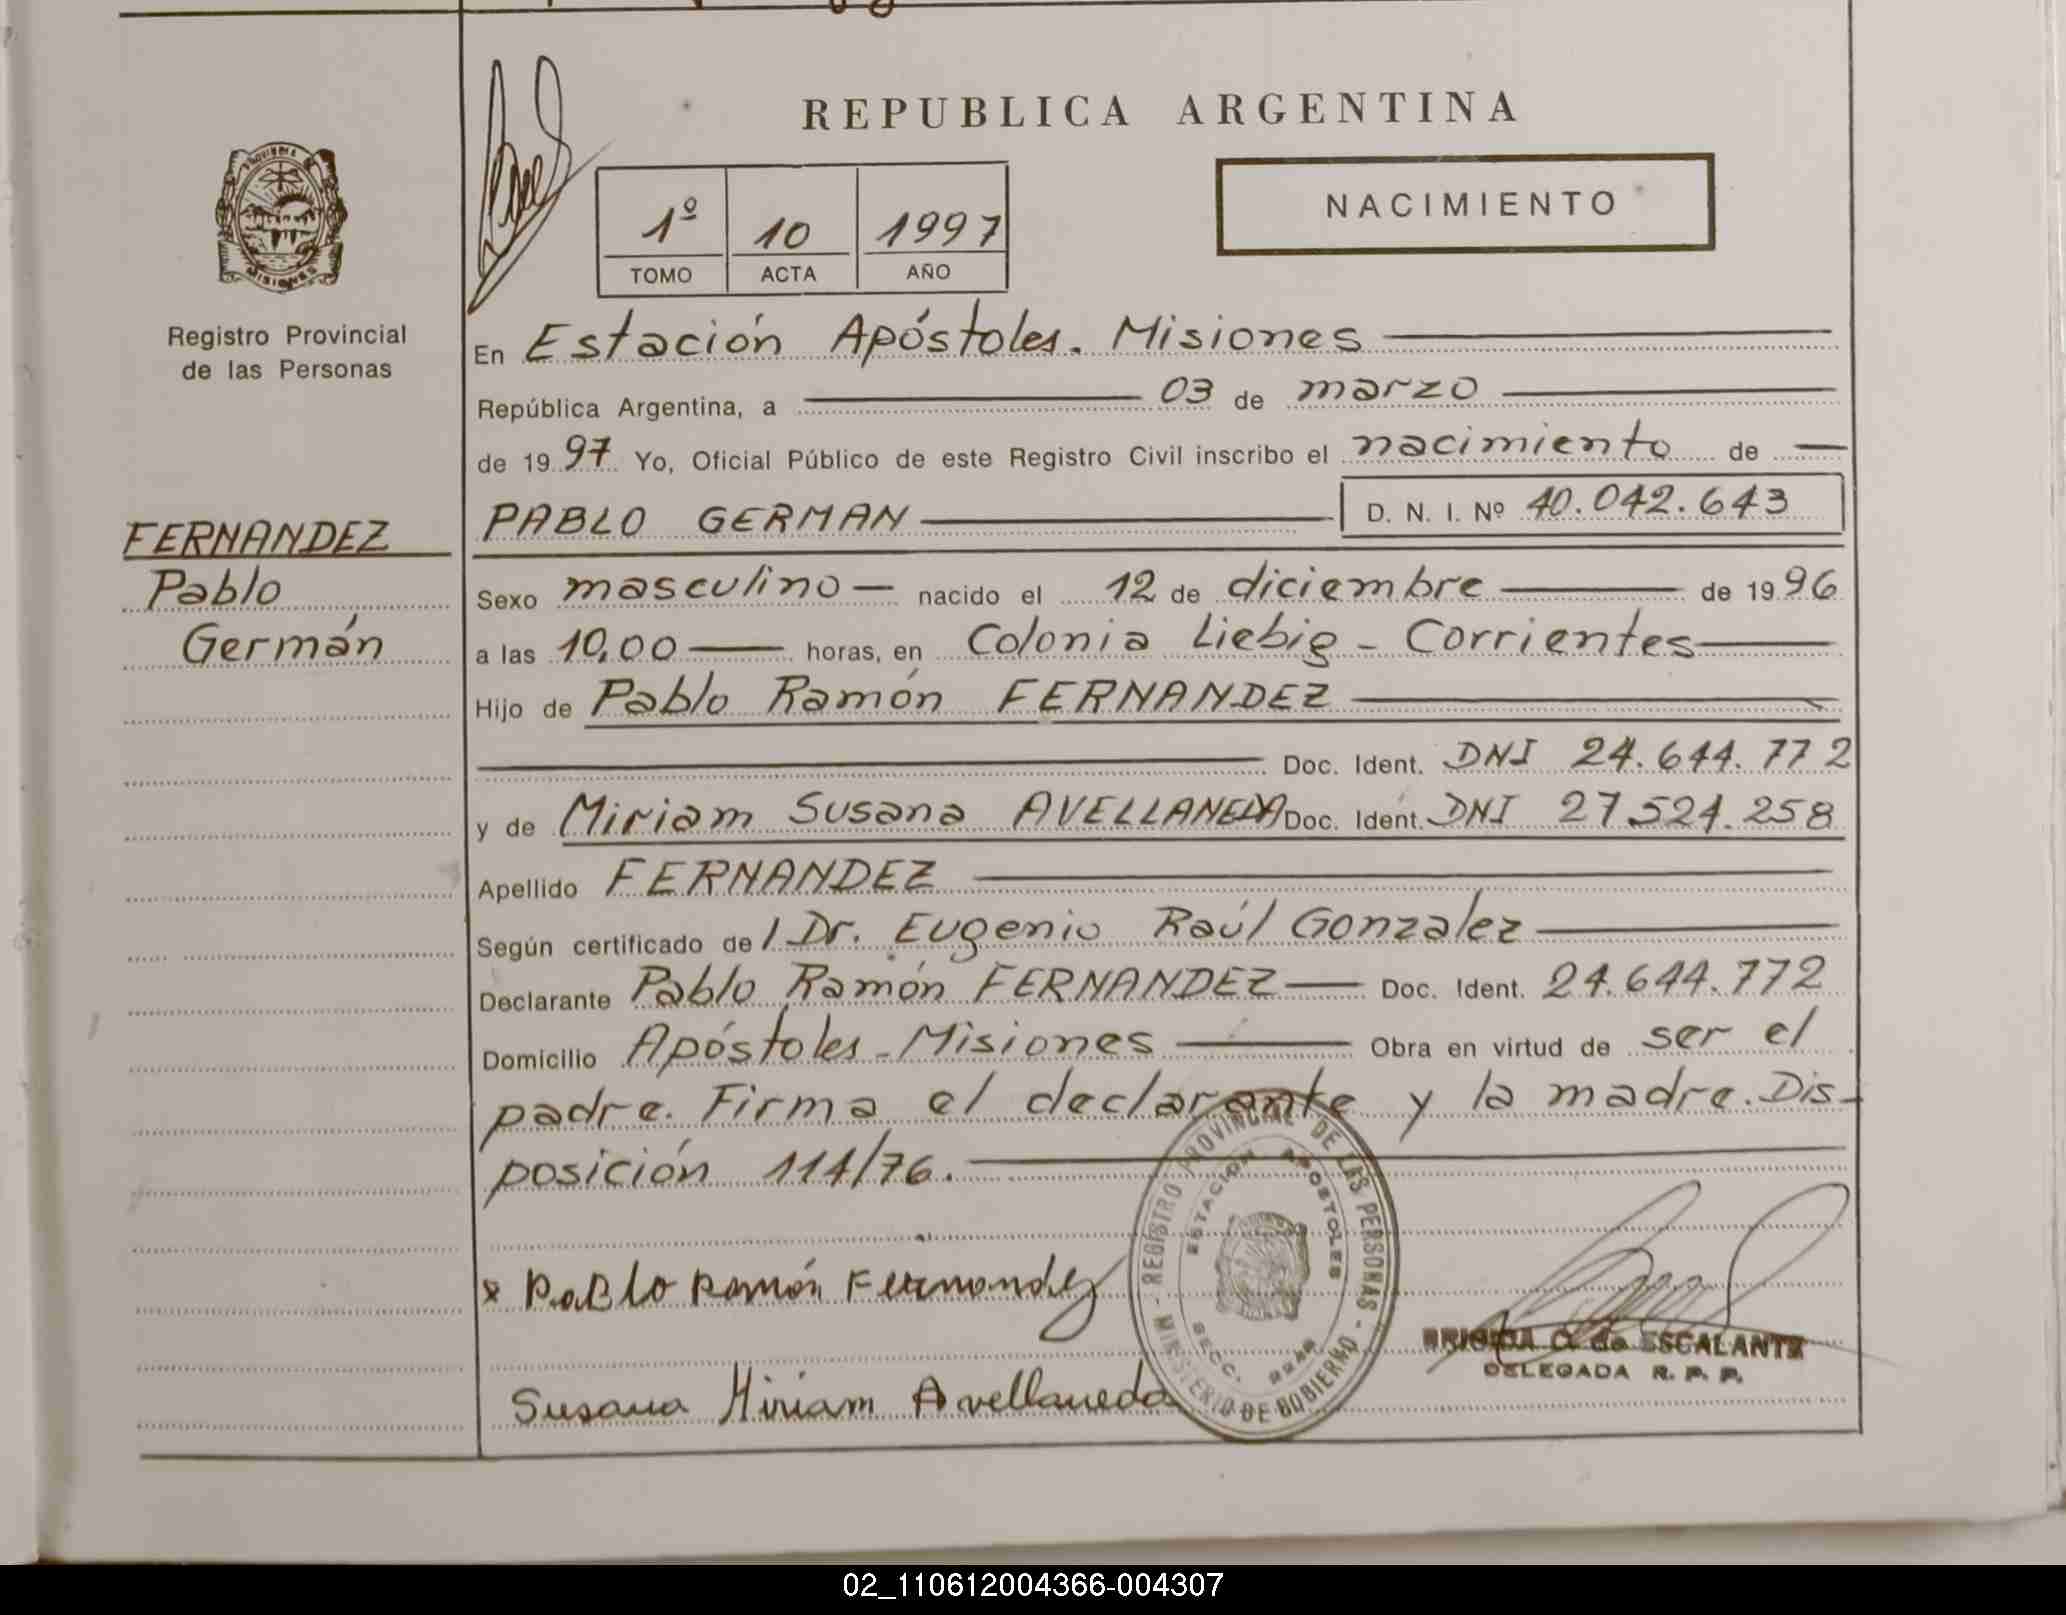 REPUBLICA ARGENTINA
NACIMIENTO
1º 10 1997
TOMO ACTA AÑO
PROVINCIA
MISIONES
Registro Provincial
de las Personas
FERNANDEZ
Pablo
Germán
En Estación Apóstoles. Misiones
República Argentina, a 03 de marzo
de 1997 Yo, Oficial Público de este Registro Civil inscribo el nacimiento de
PABLO GERMAN D. N. I. Nº 40.042.643
Sexo masculino nacido el 12 de diciembre de 1996
a las 10,00 horas, en Colonia Liebig - Corrientes
Hijo de Pablo Ramón FERNANDEZ
Doc. Ident. DNI 24.644.772
y de Miriam Susana AVELLANEDA Doc. Ident. DNI 27.524.258
Apellido FERNANDEZ
Según certificado de / Dr. Eugenio Raúl Gonzalez
Declarante Pablo Ramón FERNANDEZ Doc. Ident. 24.644.772
Domicilio Apóstoles - Misiones Obra en virtud de ser el
padre. Firma el declarante y la madre. Dis-
posición 114/76.
x Pablo Ramón Fernandez
Susana Miriam Avellaneda
- REGISTRO PROVINCIAL DE LAS PERSONAS -
MINISTERIO DE GOBIERNO
ESTACION APOSTOLES
SECC.
BRIGIDA C. de ESCALANTE
DELEGADA R. P. P.
02_110612004366-004307